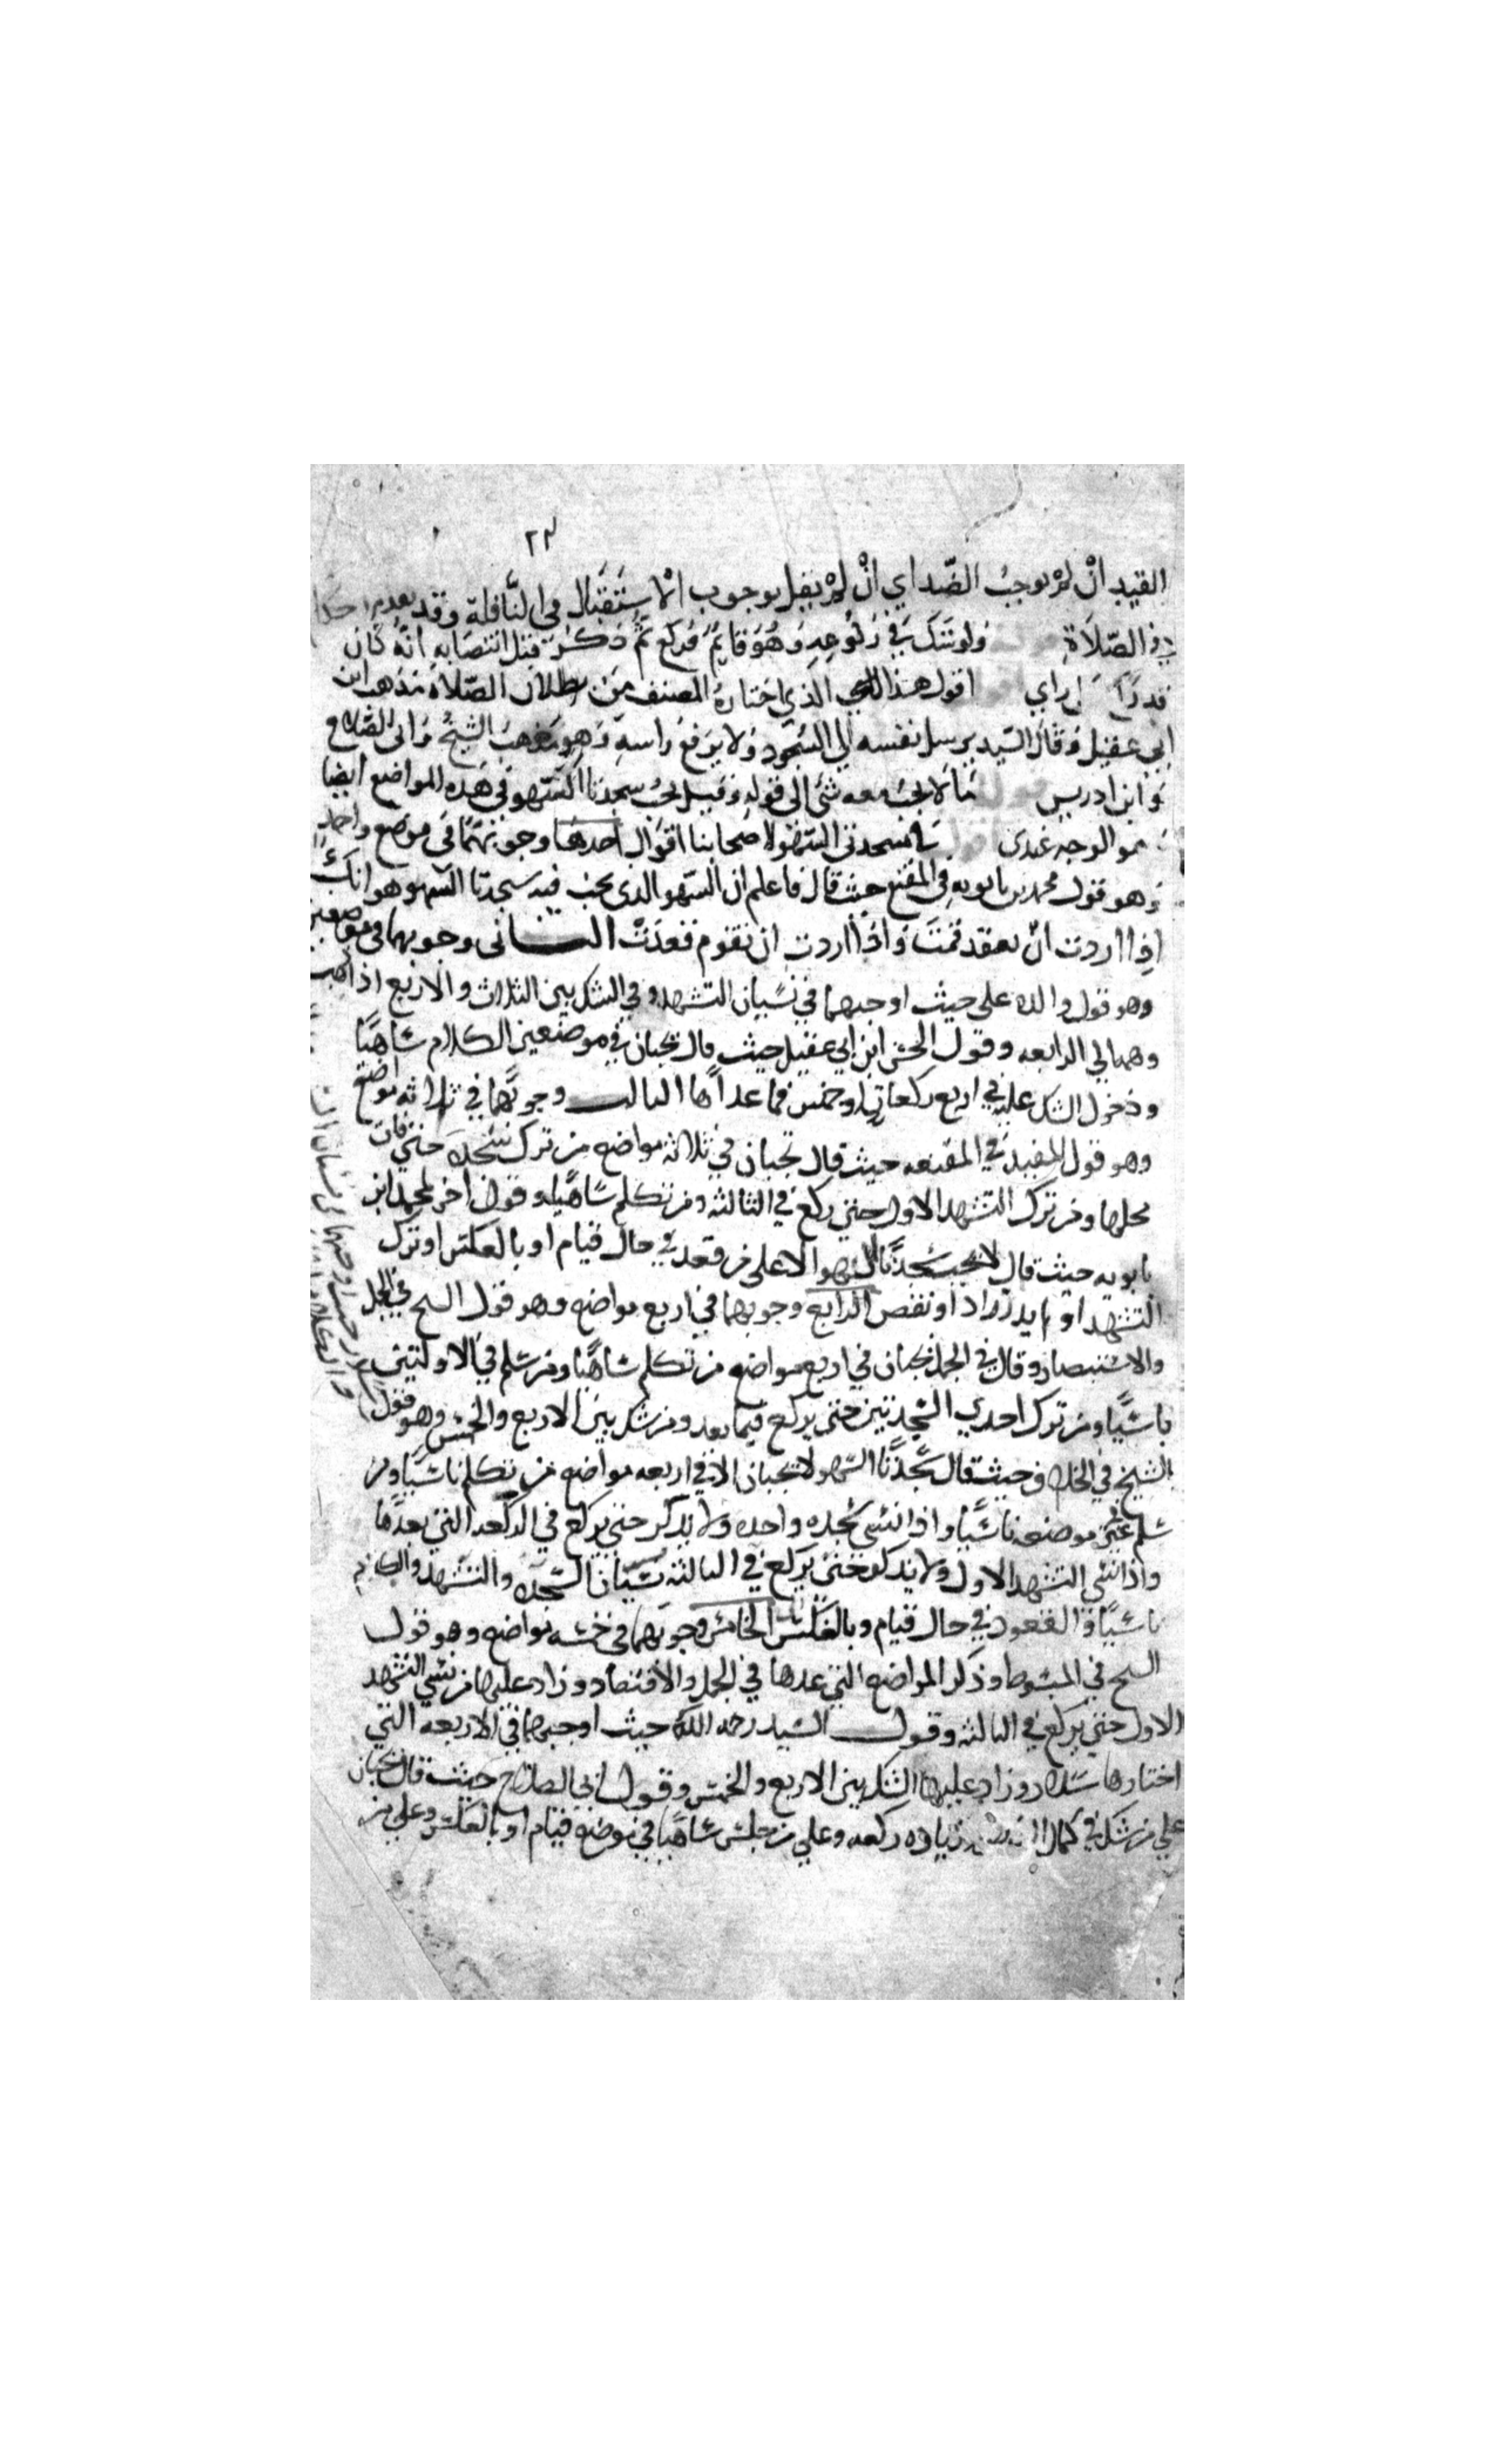 ٢٣
القيد ان لم نوجب الضد اي ان لم يقل بوجوب الاستقبال في النافلة وقد
في الصلاة ولو شك في ركوعه وهو قايم فركع ثم ذكر قبل انتصابه انه كان
راي اقول هذا الذي اختاره المصنف من بطلان الصلاة مذهب ابن
ابي عقيل وقال السيد يرسل نفسه الي السجود ولا يرفع راسه وهو مذهب الشيخ وابي الصلاح
وابن ادريس قوله ما لا يجب معه شئ الى قوله وقيل يجب سجدتا السهو في هذه المواضع ايضا
هو الوجه عندى في سجدتي السهو لاصحابنا اقوال احدها وجوبهما في موضع واحد
وهو قول محمد بن بابويه في المقنع حيث قال فاعلم ان السهو الذى يجب فيه سجدتا السهو هو انك
اذا اردت ان تقعد قمت واذا اردت ان تقوم قعدت الثانى وجوبهما في موضعين
وهو قول والده علي حيث اوجبهما في نسيان التشهد وفي الشك بين الثلاث والاربع اذا ذهب
وهمه الي الرابعه وقول الحسن ابن ابي عقيل حيث قال تجبان في موضعين الكلام ساهيا
ودخول الشك عليه في اربع ركعات او خمس فما عداها الثالث وجوبهما في ثلاثه مواضع
وهو قول المفيد في المقنعه حيث قال تجبان في ثلاثه مواضع من ترك سجده حتي فات
محلها ومن ترك التشهد الاول حتي ركع في الثالثه ومن تكلم ساهيا وقول اخر لمحمد ابن
بابويه حيث قال لا تجب سجدتا السهو الا علي من قعد في حال قيام او بالعكس او ترك
التشهد او لم يدر زاد او نقص الرابع وجوبهما في اربع مواضع وهو قول الشيخ في الجمل
والاقتصاد وقال في الجمل تجبان في اربع مواضع من تكلم ساهيا ومن سلم في الاولتين
ناسيا ومن ترك احدي السجدتين حتي يركع فيما بعد ومن شك بين الاربع والخمس وهو قول
الشيخ في الخلاف حيث قال سجدتا السهو لا تجبان الا في اربعه مواضع من تكلم ناسيا ومن
سلم في غير موضعه ناسيا واذا نسي سجده واحده ولا يذكر حتي يركع في الركعه التي بعدها
واذا نسي التشهد الاول ولا يذكر حتي يركع في الثالثه نسيان السجده والتشهد والكلام
ناسيا والقعود في حال قيام وبالعكس الخامس وجوبهما في خمسه مواضع وهو قول
الشيخ في المبسوط وذكر المواضع التي عدها في الجمل والاقتصاد وزاد عليها من نسي التشهد
الاول حتي يركع في الثالثه وقول السيد رحمه الله حيث اوجبهما في الاربعه التي
اختارها سلار وزاد عليها الشك بين الاربع والخمس وقول ابي الصلاح حيث قال تجبان
علي من شك في كمال زياده ركعه وعلي من جلس ساهيا في موضع قيام او بالعكس وعلي من